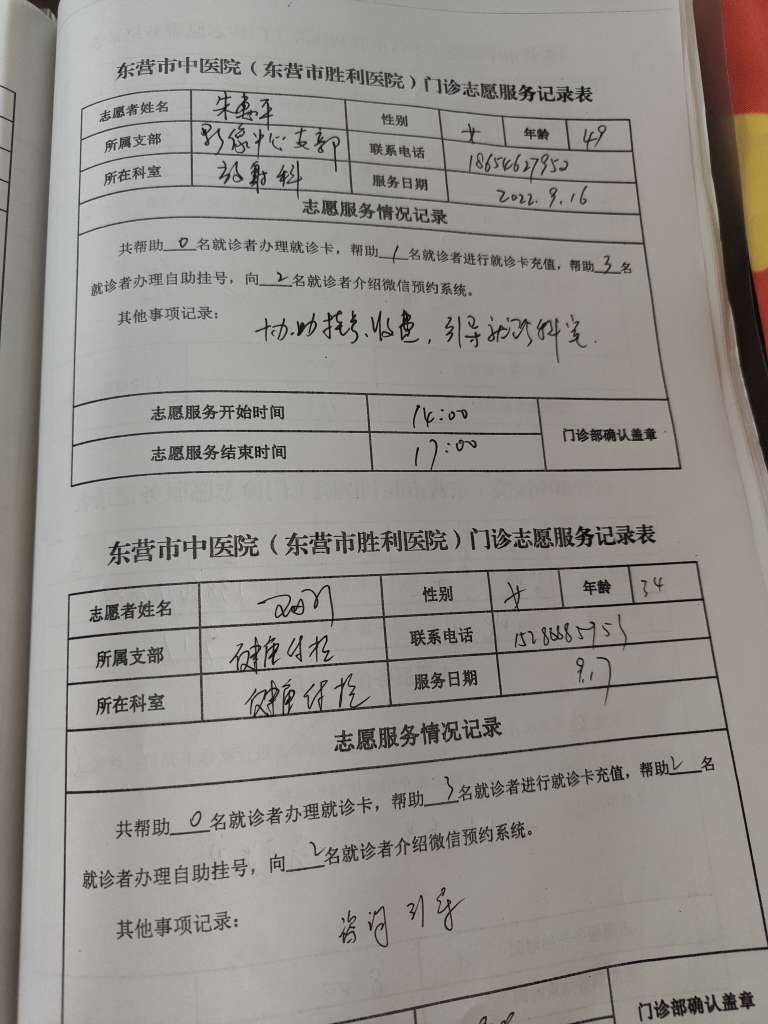 东营市中医院（东营市胜利医院）门诊志愿服务记录表
志愿者姓名 朱惠平 性别 女 年龄 49
所属支部 影像中心支部 联系电话 18654627952
所在科室 放射科 服务日期 2022.9.16
志愿服务情况记录
共帮助0名就诊者办理就诊卡，帮助1名就诊者进行就诊卡充值，帮助3名
就诊者办理自助挂号，向2名就诊者介绍微信预约系统。
其他事项记录：
协助挂号、收费，引导就诊科室.
志愿服务开始时间 14:00
志愿服务结束时间 17:00 门诊部确认盖章
东营市中医院（东营市胜利医院）门诊志愿服务记录表
志愿者姓名 性别 女 年龄 34
所属支部 健康体检 联系电话
所在科室 健康体检 服务日期 9.17
志愿服务情况记录
共帮助0名就诊者办理就诊卡，帮助3名就诊者进行就诊卡充值，帮助2名
就诊者办理自助挂号，向2名就诊者介绍微信预约系统。
其他事项记录： 咨询引导
门诊部确认盖章